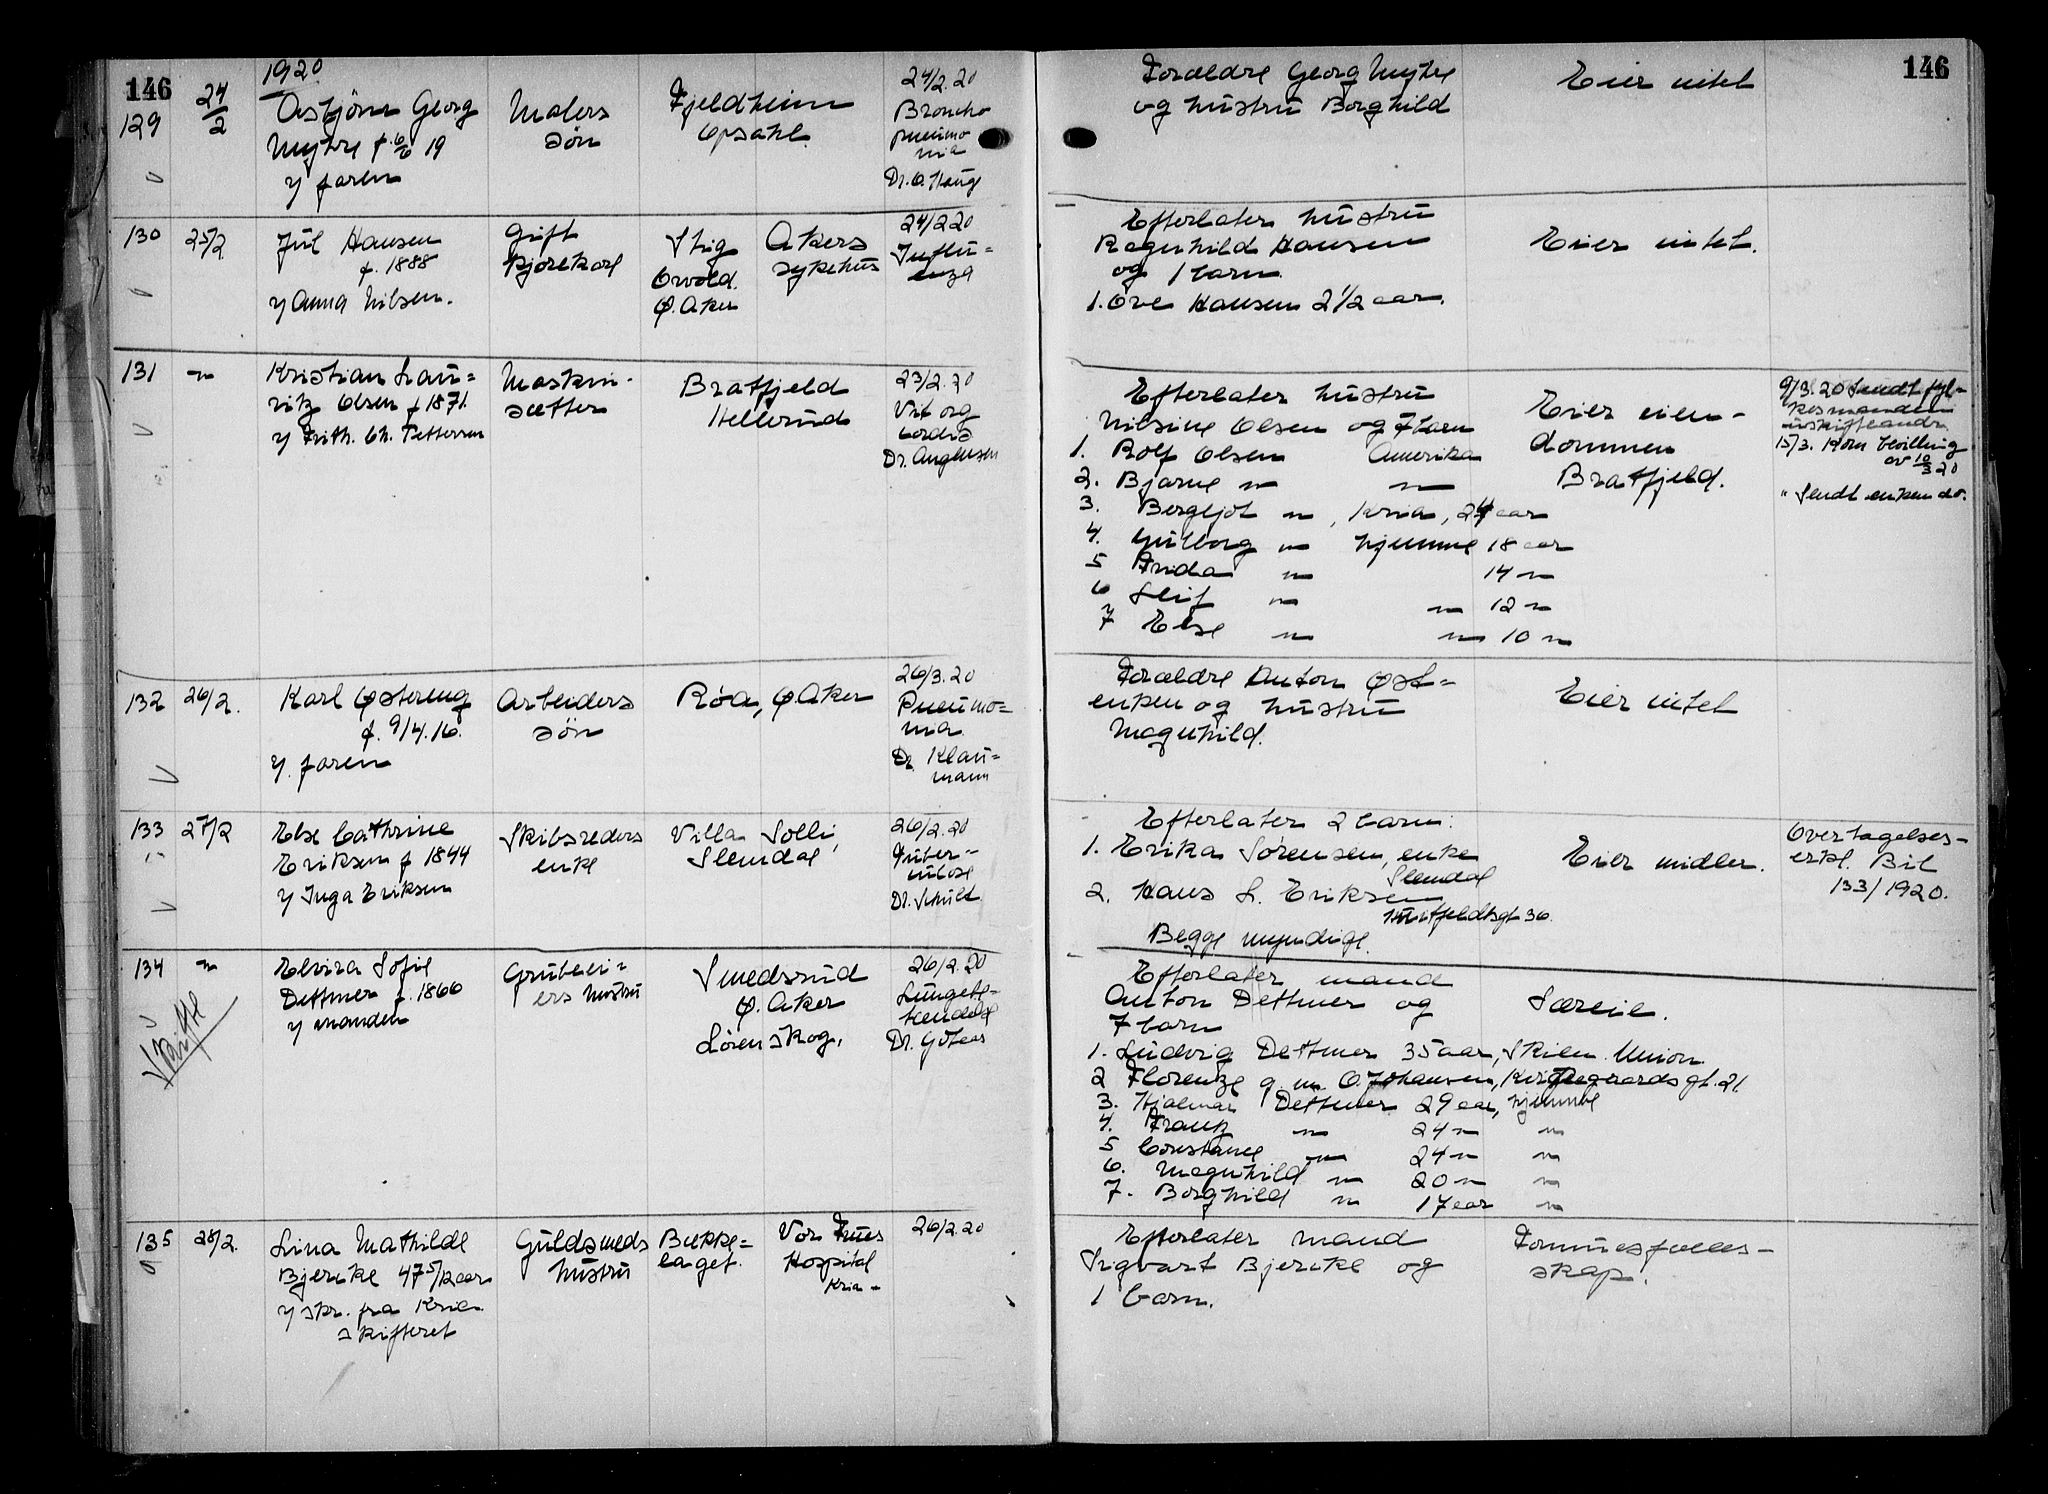 146
1920
129
24/2
Asbjörn Georg
Myhre f. 6/6 19
v/ faren
Malers
sön
Fjeldheim
Opsahl.
24/2.20
Broncho
pneumo
nia
Dr. O. Hauge
Foraeldre Georg Myhre
og hustru Borghild
Eier intet
146
130
25/2.
Jul Hansen
f. 1888
v/ Anna Nilsen.
Gift
Kjörekarl
Stig
Ø. Aker
Akers
sykehus
24/2 20
Influ=
enza
Efterlater hustru
Ragnhild Hansen
og 1 barn
1. Ove Hansen 2 1/2 aar.
Eier intet.
131
"
Kristian Lau=
ritz Olsen f 1871.
v/ Frith. Ch. Pettersen
Maskin-
sætter
Bratfjeld
Hellerud
23/2.20
Vit org
cordis
Efterlater hustru
Nilsine Olsen og 7 barn
1. Rolf Olsen Amerika
2. Bjarne " "
3. Bergljot " , Kria, 24 aar
4. Gulborg " hjemme 18 aar
5 Frida " 14 "
6 Leif " " 12 "
7 Else " " 10 "
Eier eien-
dommen
Bratfjeld.
9/3.20 Sendt fyl-
kesmanden
15/3. Kom bevilling
av 10/3 20
" Sendt enken do.
132
26/2.
Karl Østereng
f. 9/4.16.
v/ faren
Arbeiders
sön
Röa, Ø. Aker
26/3.20
Pneumo=
nia
Dr. Klau=
mann
Foraeldre Anton Øst=
enken og hustru
Magnhild.
Eier intet
133
27/2
Else Cathrine
Eriksen f 1844
v/ Inga Eriksen
Skibsreders
enke
Villa Solli,
Slemdal
26/2.20
Tuber-
kulose
Dr. Schült
Efterlater 2 barn:
1. Erika Sörensen, enke
Slemdal
2. Hans L. Eriksen
Huitfeldtsgt 36.
Begge myndige.
Eier midler.
Overtagelses-
erkl. Bil
133/1920.
134
"
Skifte
Elvira Sofie
Dettmer f. 1866
v/ manden
Grubeei-
ers hustru
Smedsrud
Ø. Aker
Lörenskog,
26/2.20
Lungebe-
tændelse
Efterlater mand
Anton Dettmer og
7 barn
Særeie.
1. Ludvig Dettmer 35 aar, Skien Union
2 Florenze g. m. O. Johansen, Kirkegaards gt. 21.
3. Hjalmar Dettmer 29 aar, hjemme
4. Frantz " 24 " "
5 Constance " 24 " "
6. Magnhild " 20 " "
7. Borghild " 17 aar "
135
28/2.
Lina Mathilde
Bjercke 47 5/12 aar
v/ skr. fra Kria
skifteret
Guldsmeds
hustru
Bække=
laget.
Vor Frues
Hospital
Kria -
26/2.20
Efterlater mand
Sigvart Bjercke og
1 barn.
Formuesfælles-
skap.